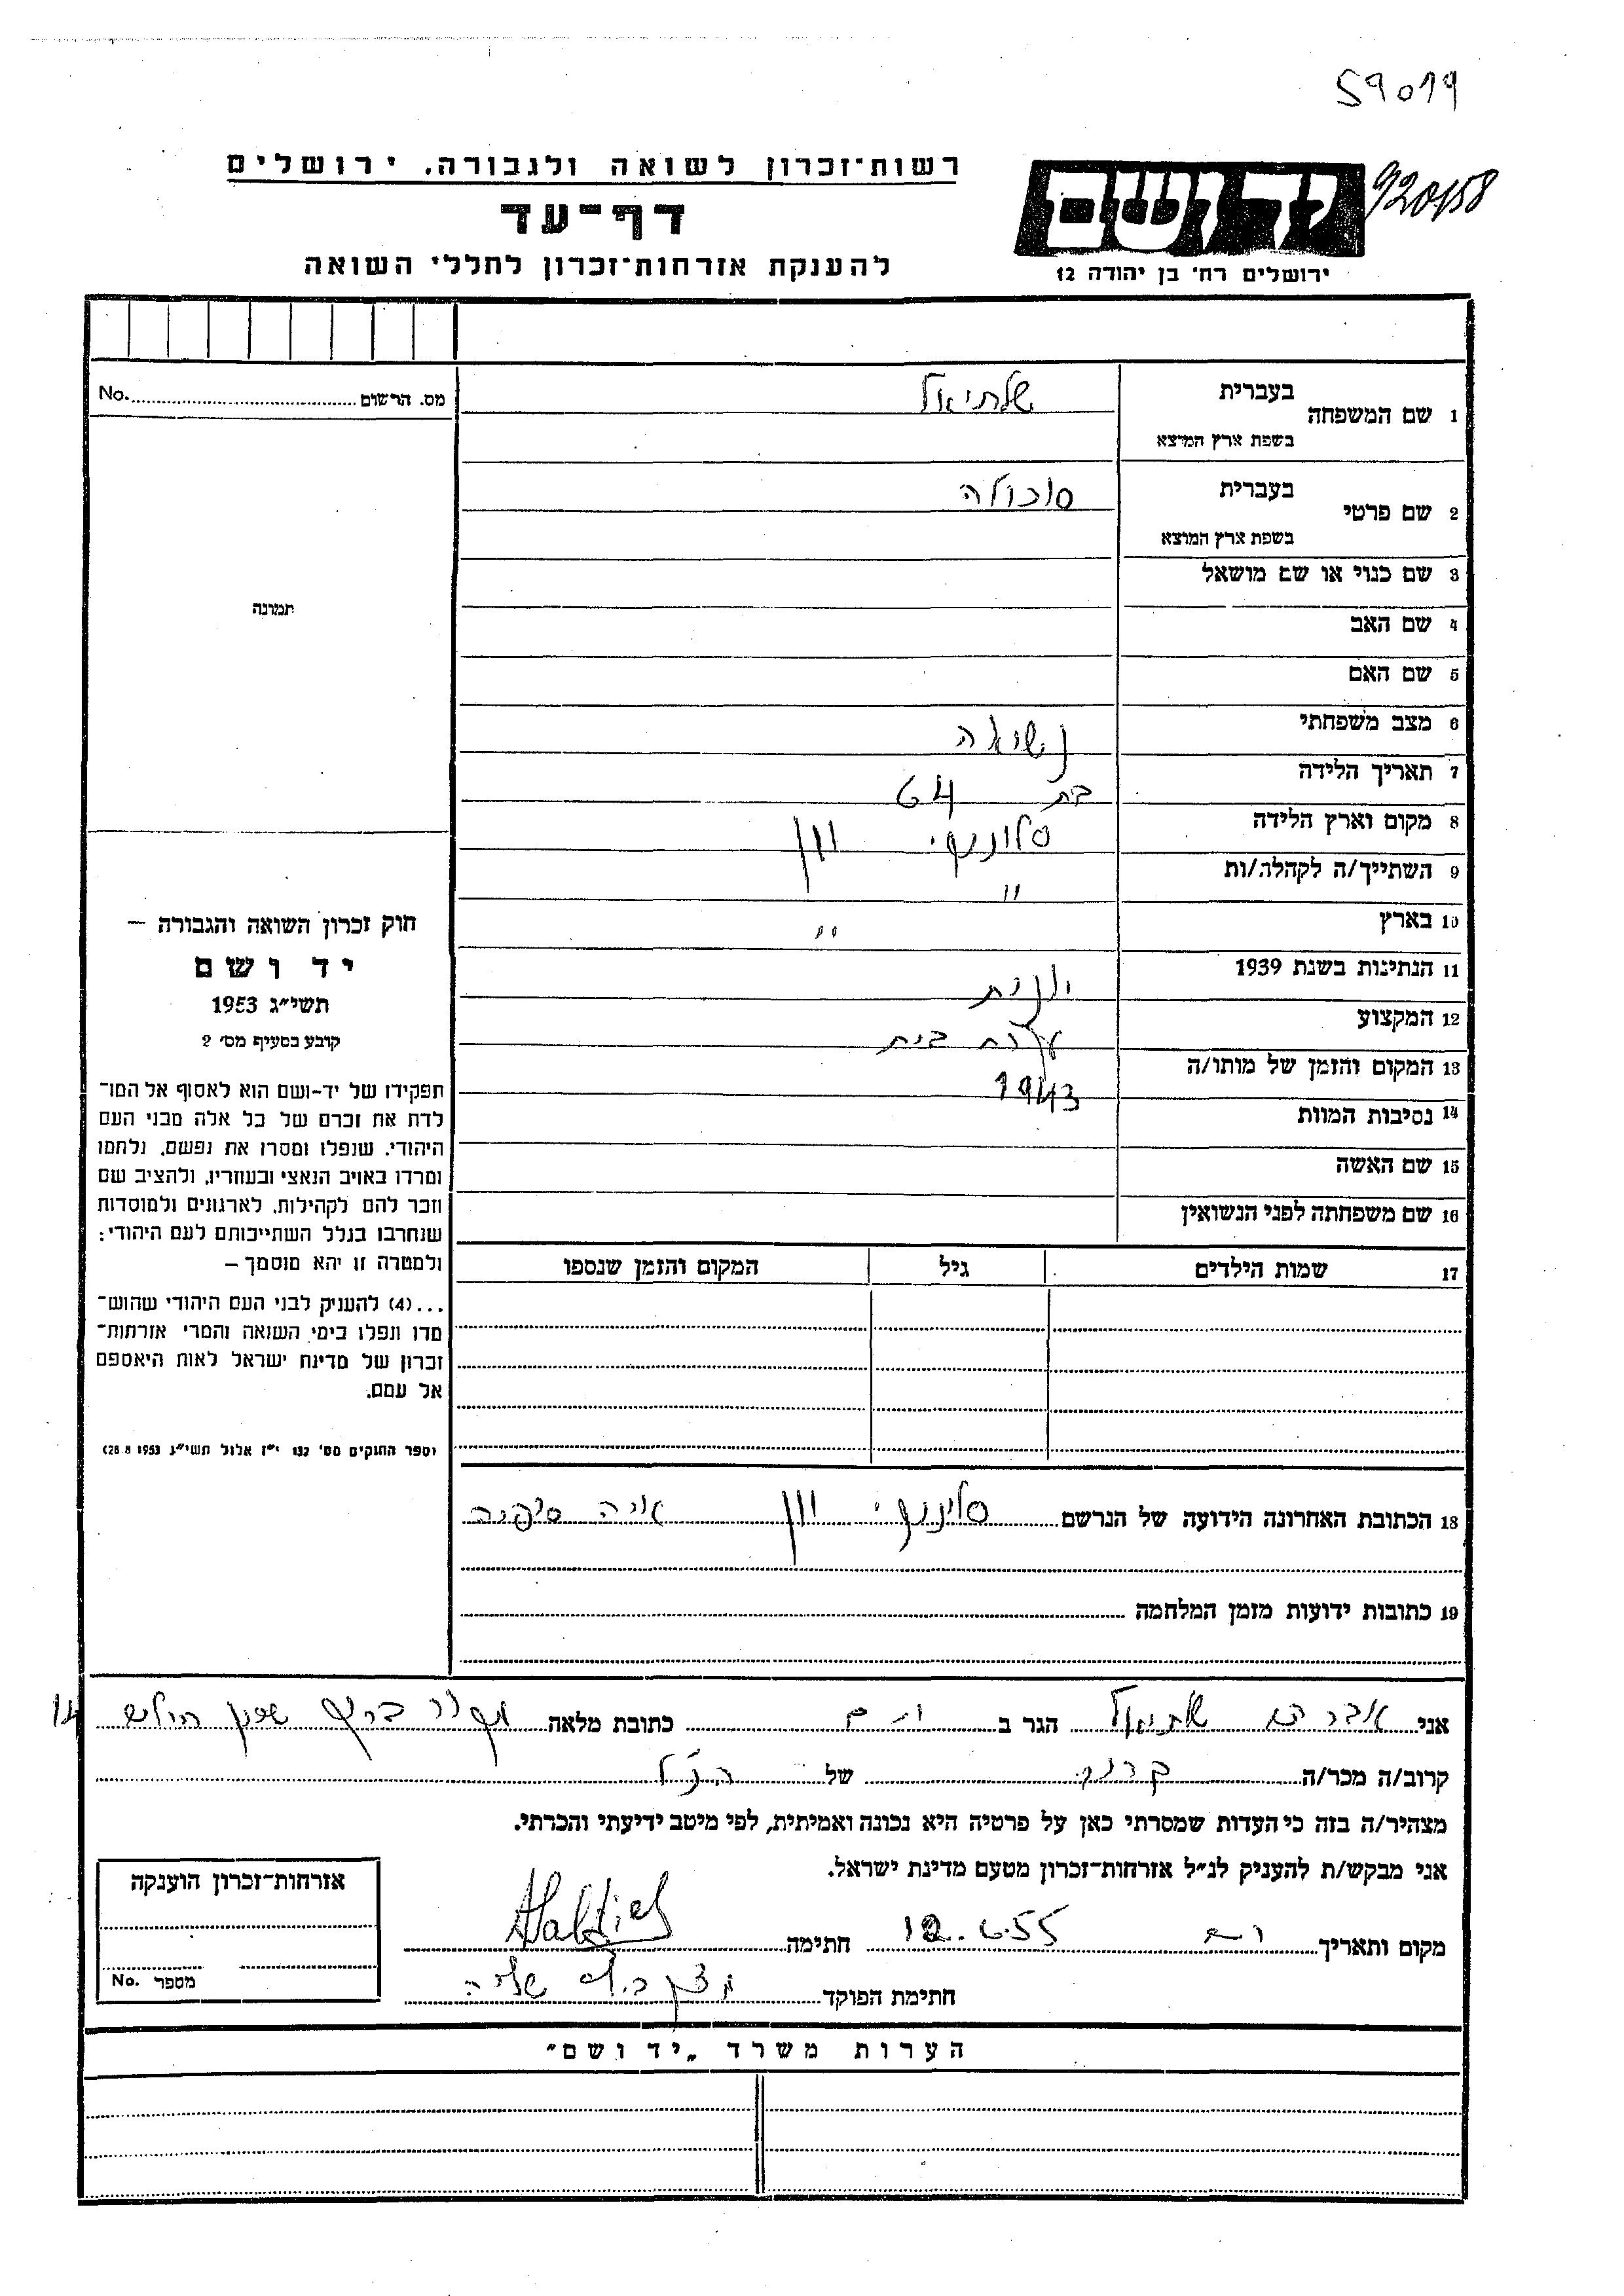 59019
920158
רשות־זכרון לשואה ולגבורה, ירושלים
דף־עד
להענקת אזרחות־זכרון לחללי השואה
יד ושם
ירושלים רח' בן יהודה 12
מס. הרשום No.
1 שם המשפחה בעברית שלתיאל
בשפת ארץ המוצא
2 שם פרטי בעברית
בשפת ארץ המוצא
3 שם כנוי או שם מושאל
4 שם האב
5 שם האם
6 מצב משפחתי נשואה
7 תאריך הלידה בת 64
8 מקום וארץ הלידה סלוניקי יוון
9 השתייך/ה לקהלה/ות "
10 בארץ "
11 הנתינות בשנת 1939 יונית
12 המקצוע עקרת בית
13 המקום והזמן של מותו/ה 1943
14 נסיבות המוות
15 שם האשה
16 שם משפחתה לפני הנשואין
17 שמות הילדים גיל המקום והזמן שנספו
תמונה
חוק זכרון השואה והגבורה –
יד ושם
תשי"ג 1953
קובע בסעיף מס' 2
תפקידו של יד-ושם הוא לאסוף אל המו־
לדת את זכרם של כל אלה מבני העם
היהודי, שנפלו ומסרו את נפשם, נלחמו
ומרדו באויב הנאצי ובעוזריו, ולהציב שם
וזכר להם לקהילות, לארגונים ולמוסדות
שנחרבו בגלל השתייכותם לעם היהודי;
ולמטרה זו יהא מוסמך –
...(4) להעניק לבני העם היהודי שהוש־
מדו ונפלו בימי השואה והמרי אזרחות־
זכרון של מדינת ישראל לאות היאספם
אל עמם.
(ספר החוקים מס' 132 י"ז אלול תשי"ג 28.8.1953)
18 הכתובת האחרונה הידועה של הנרשם סלוניקי יוון
19 כתובות ידועות מזמן המלחמה
אני אברהם שלתיאל הגר ב כתובת מלאה
קרוב/ה מכר/ה קרוב של הנ"ל
מצהיר/ה בזה כי העדות שמסרתי כאן על פרטיה היא נכונה ואמיתית, לפי מיטב ידיעתי והכרתי.
אני מבקש/ת להעניק לנ"ל אזרחות־זכרון מטעם מדינת ישראל.
מקום ותאריך 12.6.55 חתימה ASaltiel
חתימת הפוקד
אזרחות־זכרון הוענקה
מספר No.
הערות משרד „יד ושם"